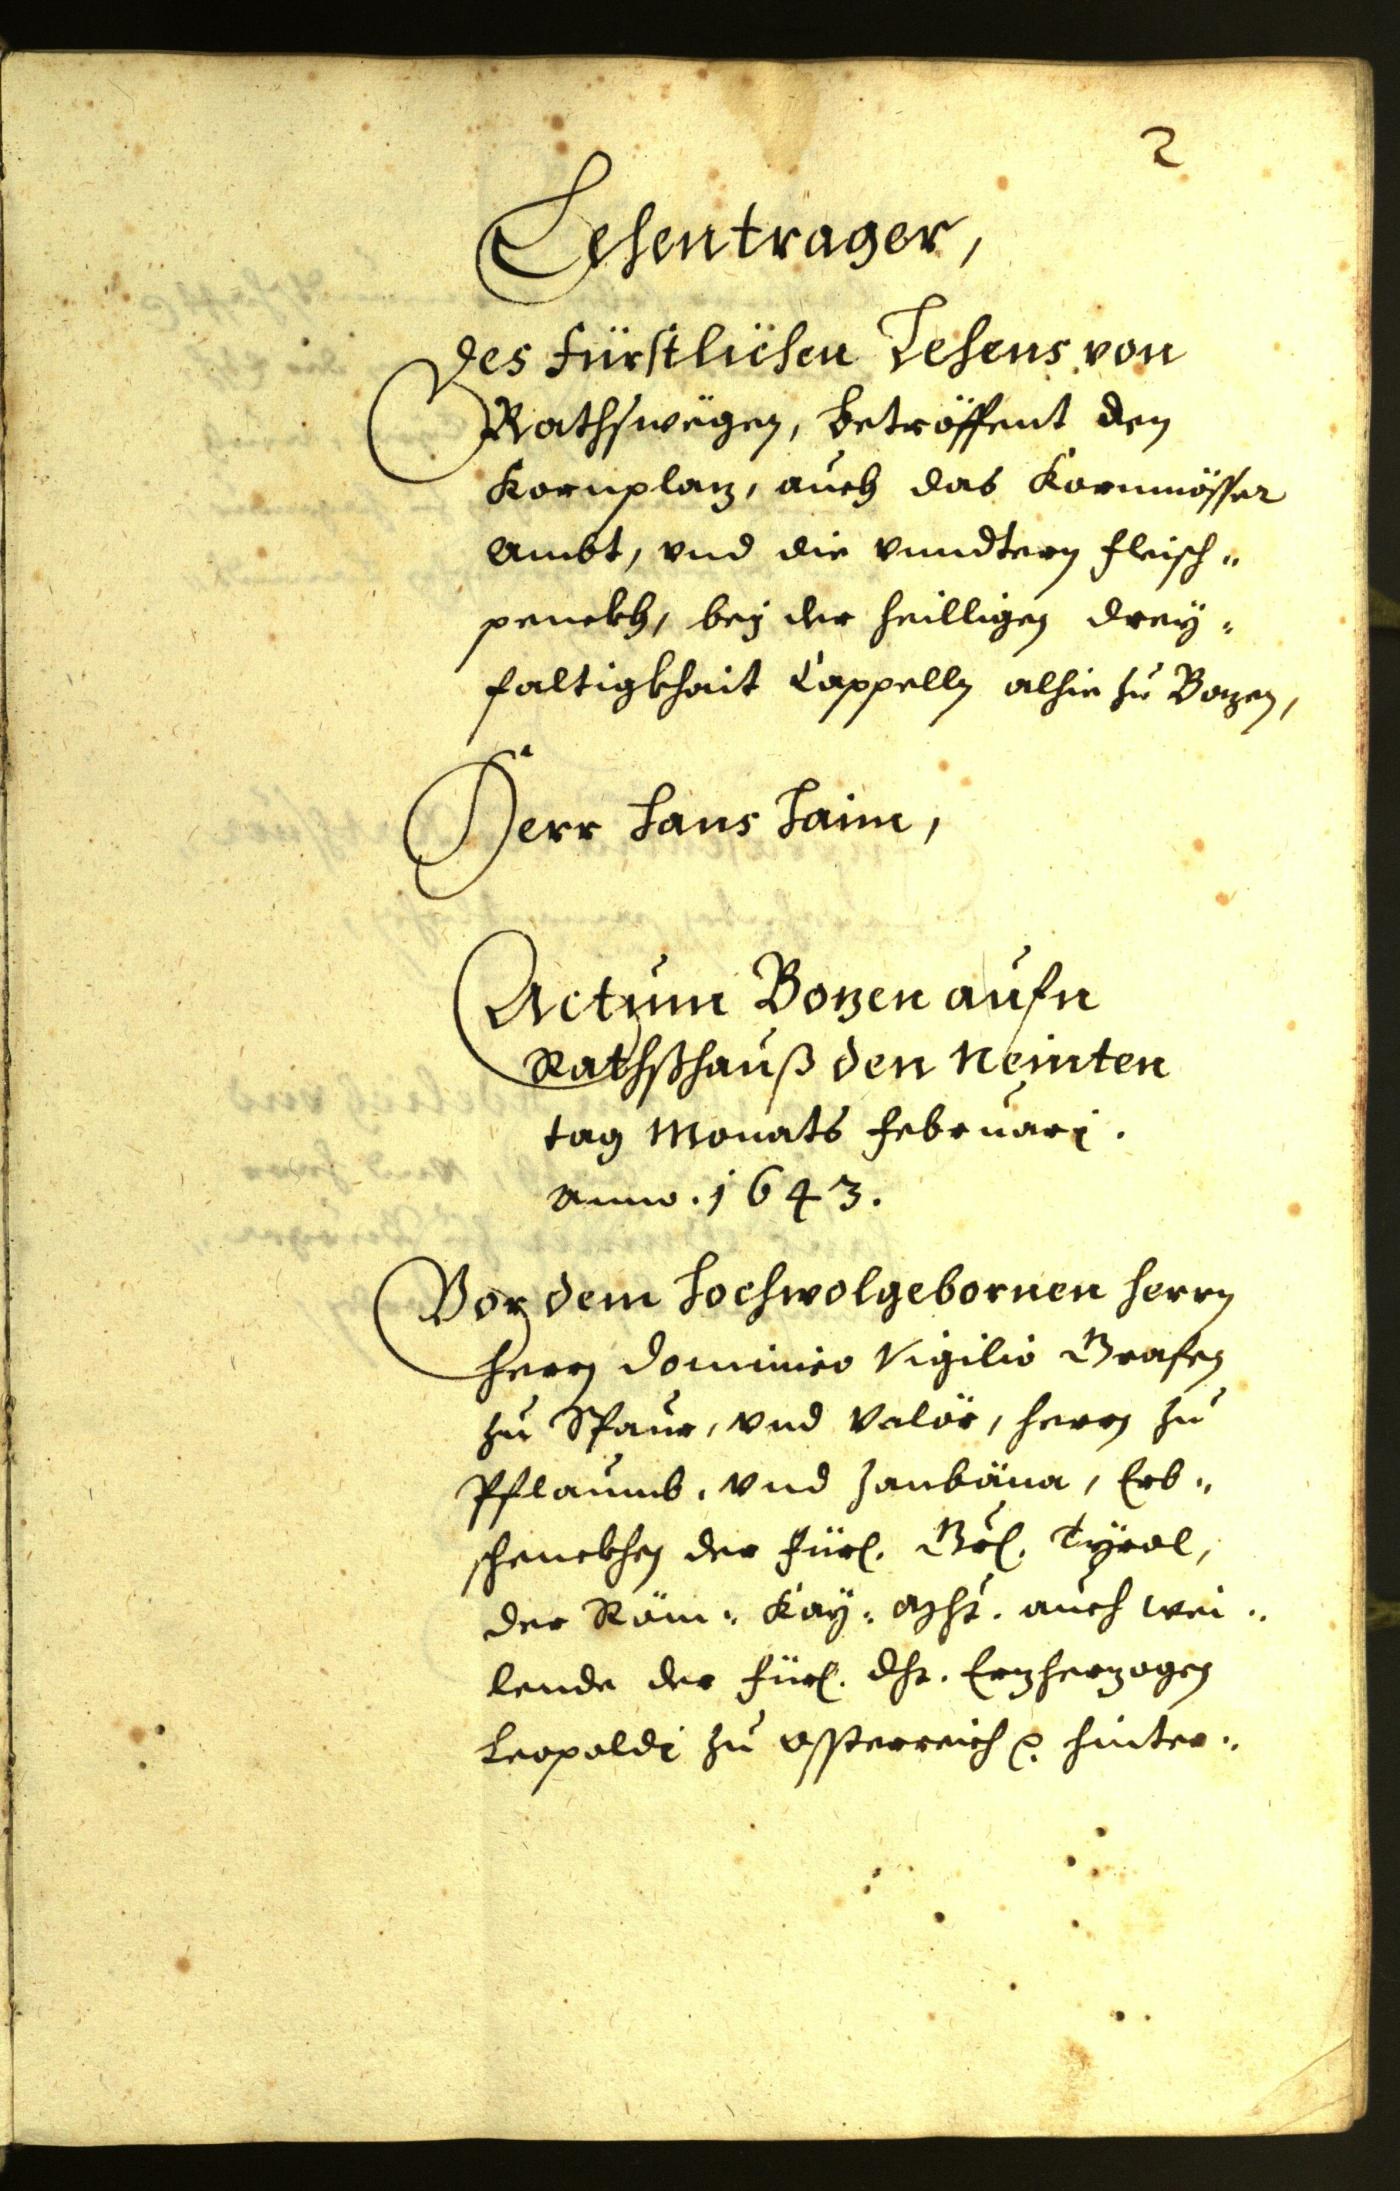 2
Lehentrager,
des fürstlichen Lehens von
Rathswëgen, betröffent den
Kornplatz, auch das Kornmösser
Ambt, vnd die vnndtern Fleisch„
penckh, bej der heilligen Drey„
faltigkhait Cappelln alhie zu Bozen,
Herr Hans Haim,
Actum Bozen aufn
Rathßhauß den Neinten
tag Monats Februarj.
Anno. 1643.
Vor dem Hochwolgebornen Herrn
Herrn Dominico Vigilio Grafen
zu Spaur, vnd Valör, Herrn zu
Pflaumb, vnd Zambäna, Erb„
schenckhen der Fürl. Grl. Tÿrol,
der Röm: Kaÿ: Mht. auch wei„
lende der Fürl. Dht. Erzherzogen
Leopoldj zu Össterreich etc. hinter„